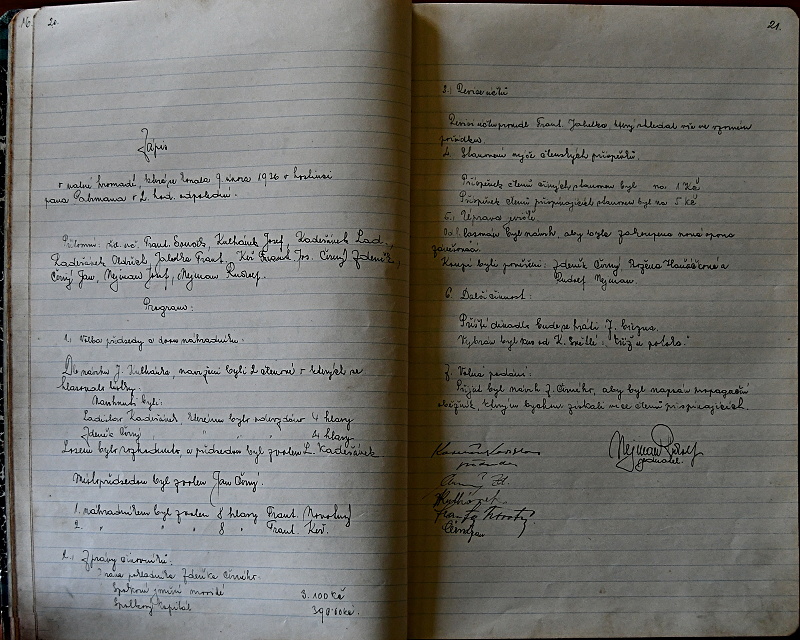 20.
Zápis
v valné hromadě, která se konala 9 února 1936 v hostinci
pana Pabrmana v 2 hod. odpoledne.
Přítomni: Frant. Kulhánek Josef, Kadeřánek Lad.,
Kadeřánek Oldřich, Jabelka Frant., Keř Frant. Jos. Černý Zdeněk,
Černý Jan, Nejman Josef, Nejman Rudolf.
Program:
1.) Volba předsedy a dvou náhradníků.
Do návrhu J. Kulhánka, navrženi byli 2 členové o kterých se
hlasovalo lístky.
Navrhnuti byli:
Ladislav Kadeřánek, kterému bylo odevzdáno 4 hlasy
Zdeněk Černý " " " 4 hlasy
Losem bylo rozhodnuto a předsedou byl zvolen L. Kadeřánek
Místopředsedou byl zvolen Jan Černý.
1. náhradníkem byl zvolen 8 hlasy Frant. Novotný
2. " " " 8 " Frant. Keř.
2.) Zprávy činovníků:
Zpráva pokladníka Zdeňka Černého
Spolkové jmění movité 3.100 Kč
Spolkový kapitál 390.60 Kč.
21.
3.) Revise účtů
Revisi účtů provedl Frant. Jabelka, který shledal vše ve vzorném
pořádku.
4. Stanovení výše členských příspěvků.
Příspěvek členů činných stanoven byl na 1 Kč
Příspěvek členů přispívajících stanoven byl na 5 Kč
5. Úprava jeviště
byl návrh, aby byla zakoupena nová opona
Koupí byli pověřeni: Zdeněk Černý Božena a
Rudolf Nejman.
6. Další činnost:
Příští divadlo bude se hráti 7. března.
Vybrán byl kus od K. "Kříž u potoka."
7. Volné podání:
Přijat byl návrh Z. Černého, aby byl napsán propagační
oběžník, kterým bychom získali více členů přispívajících.
Nejman Rudolf
jednatel.
předseda
Kulhánek
Černý Jan